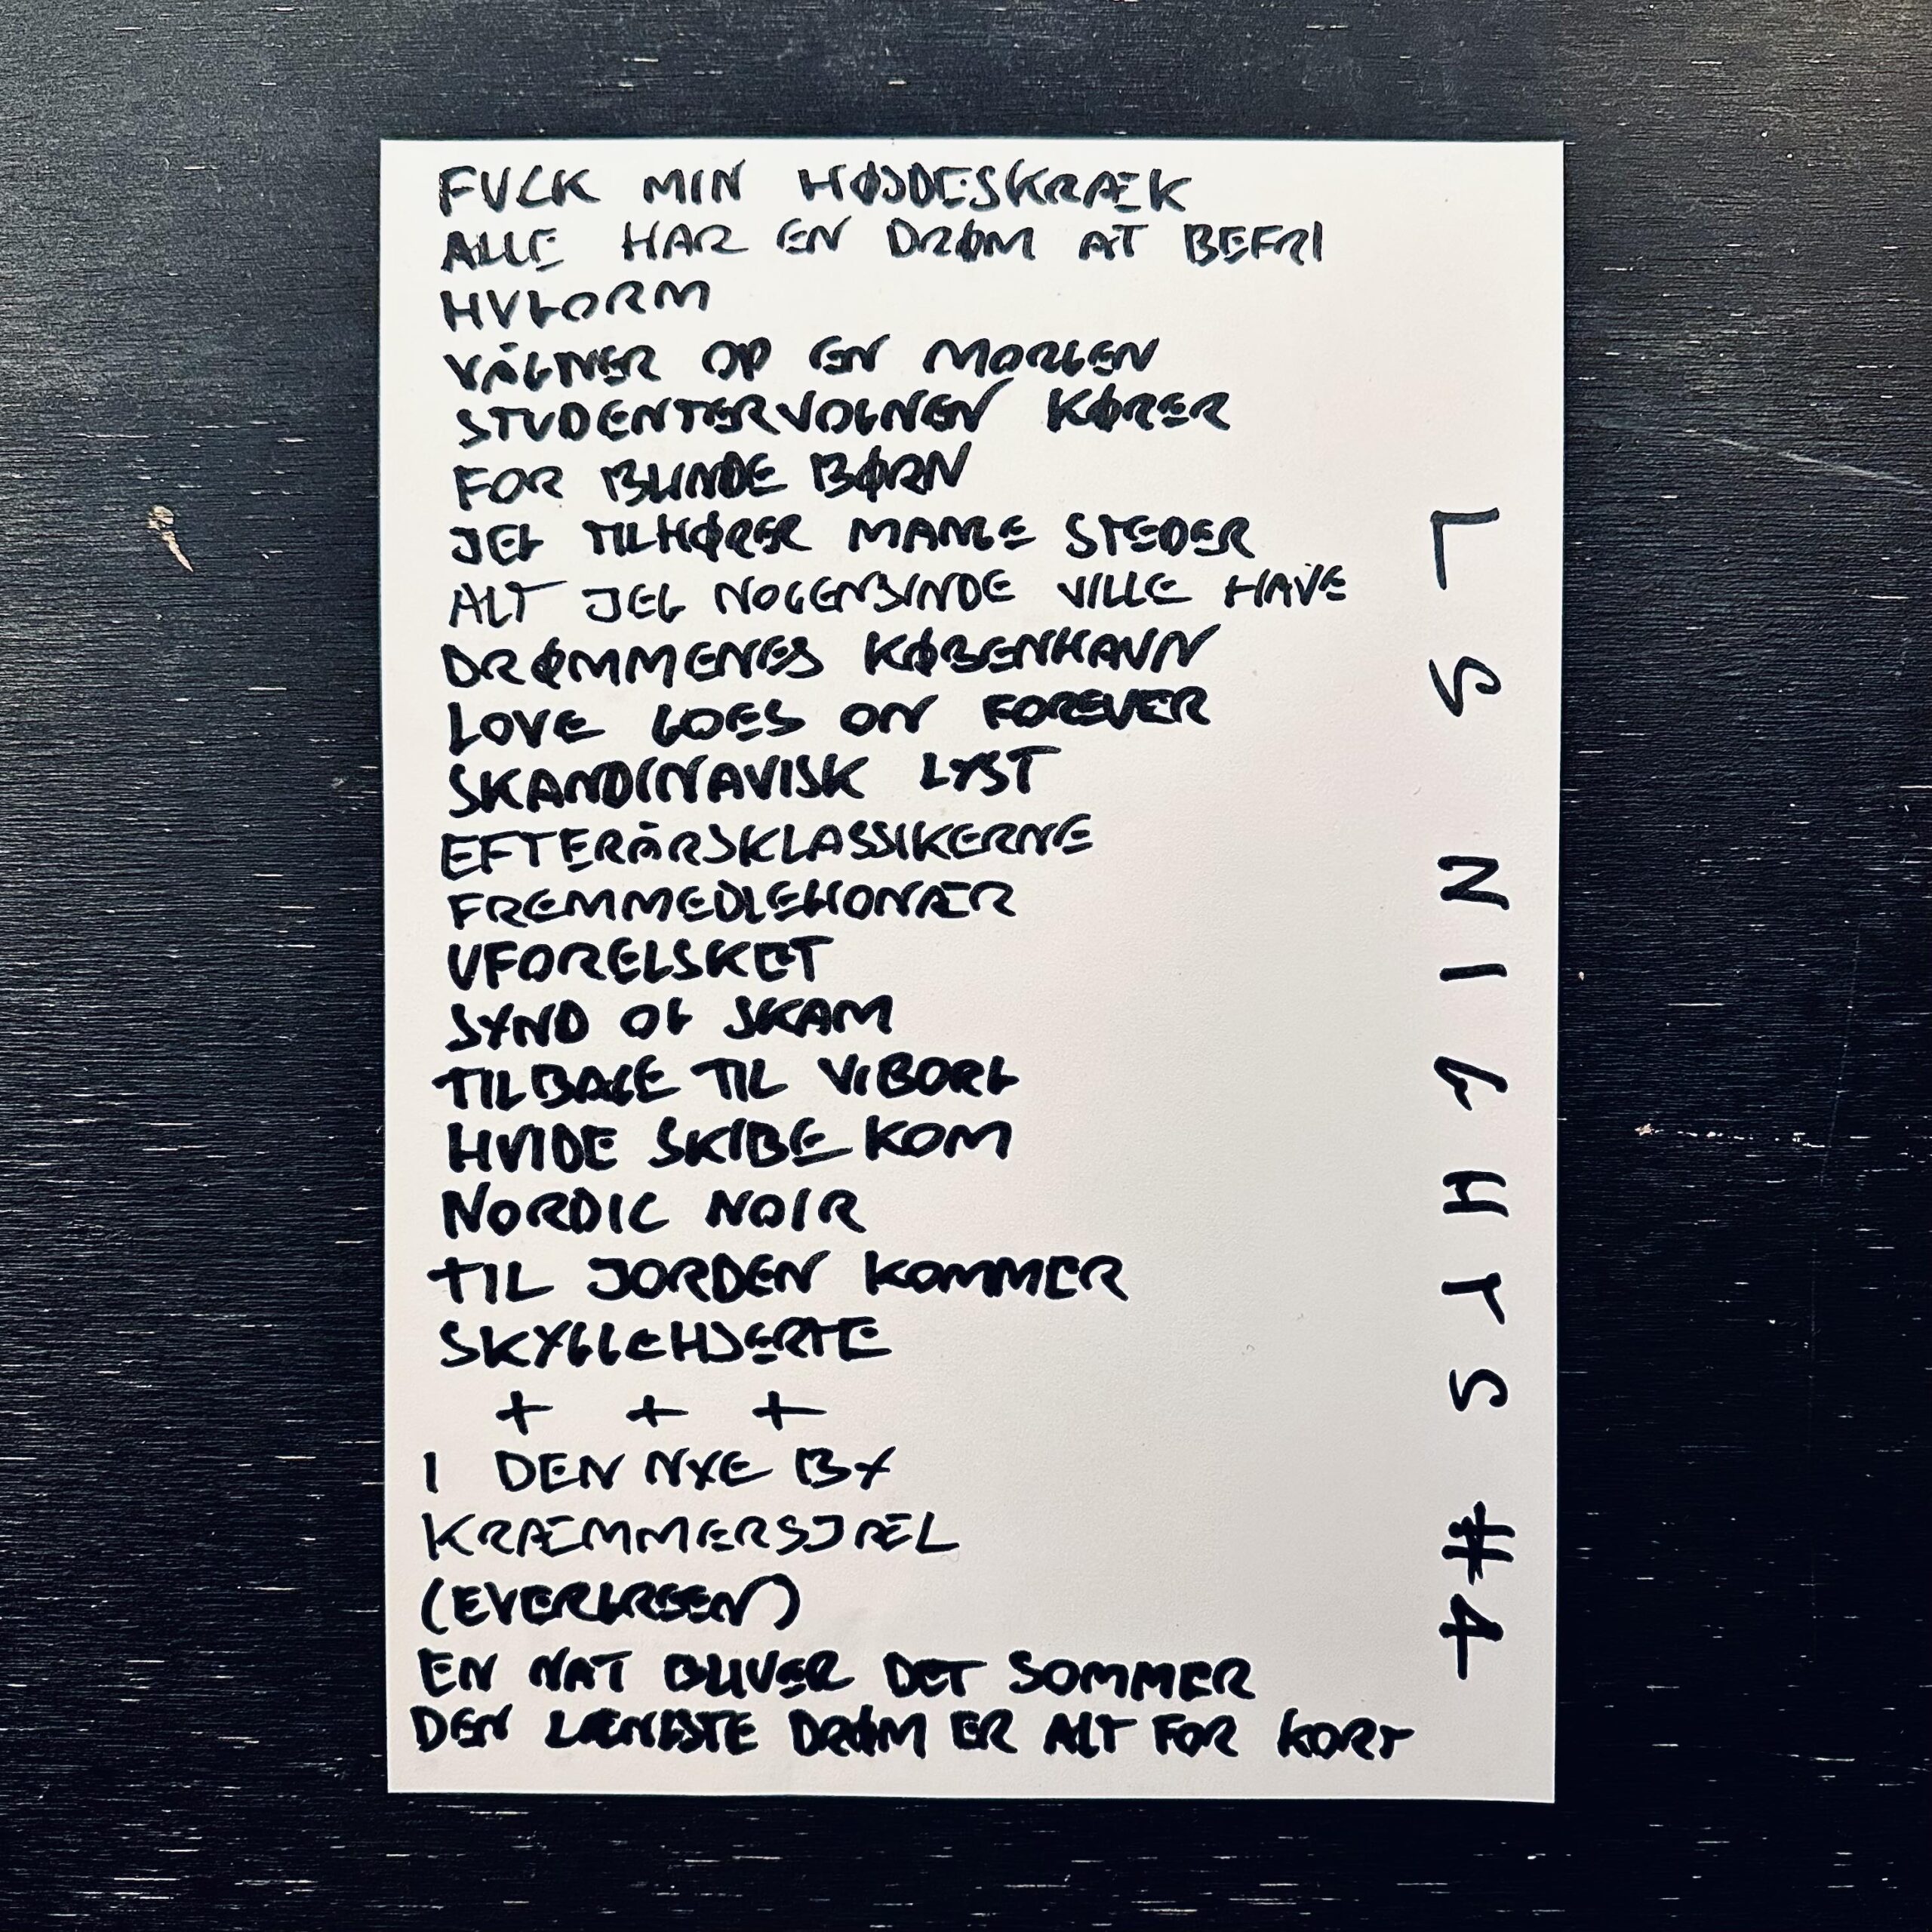 FUCK MIN HØJDESKRÆK
ALLE HAR EN DRØM AT BEFRI
HVGORM
VÅGNER OP EN MORGEN
STUDENTERVOGNEN KØRER
FOR BLINDE BØRN
JEG TILHØRER MANGE STEDER
ALT JEG NOGENSINDE VILLE HAVE
DRØMMENES KØBENHAVN
LOVE GOES ON FOREVER
SKANDINAVISK LYST
EFTERÅRSKLASSIKERNE
FREMMEDLEGIONÆR
UFORELSKET
SYND OG SKAM
TILBAGE TIL VIBORG
HVIDE SKIBE KOM
NORDIC NOIR
TIL JORDEN KOMMER
SKYGGEHJERTE
+ + +
I DEN NYE BY
KRÆMMERSJÆL
(EVERGREEN)
EN NAT BLIVER DET SOMMER
DEN LÆNGSTE DRØM ER ALT FOR KORT
LS NIGHTS #4